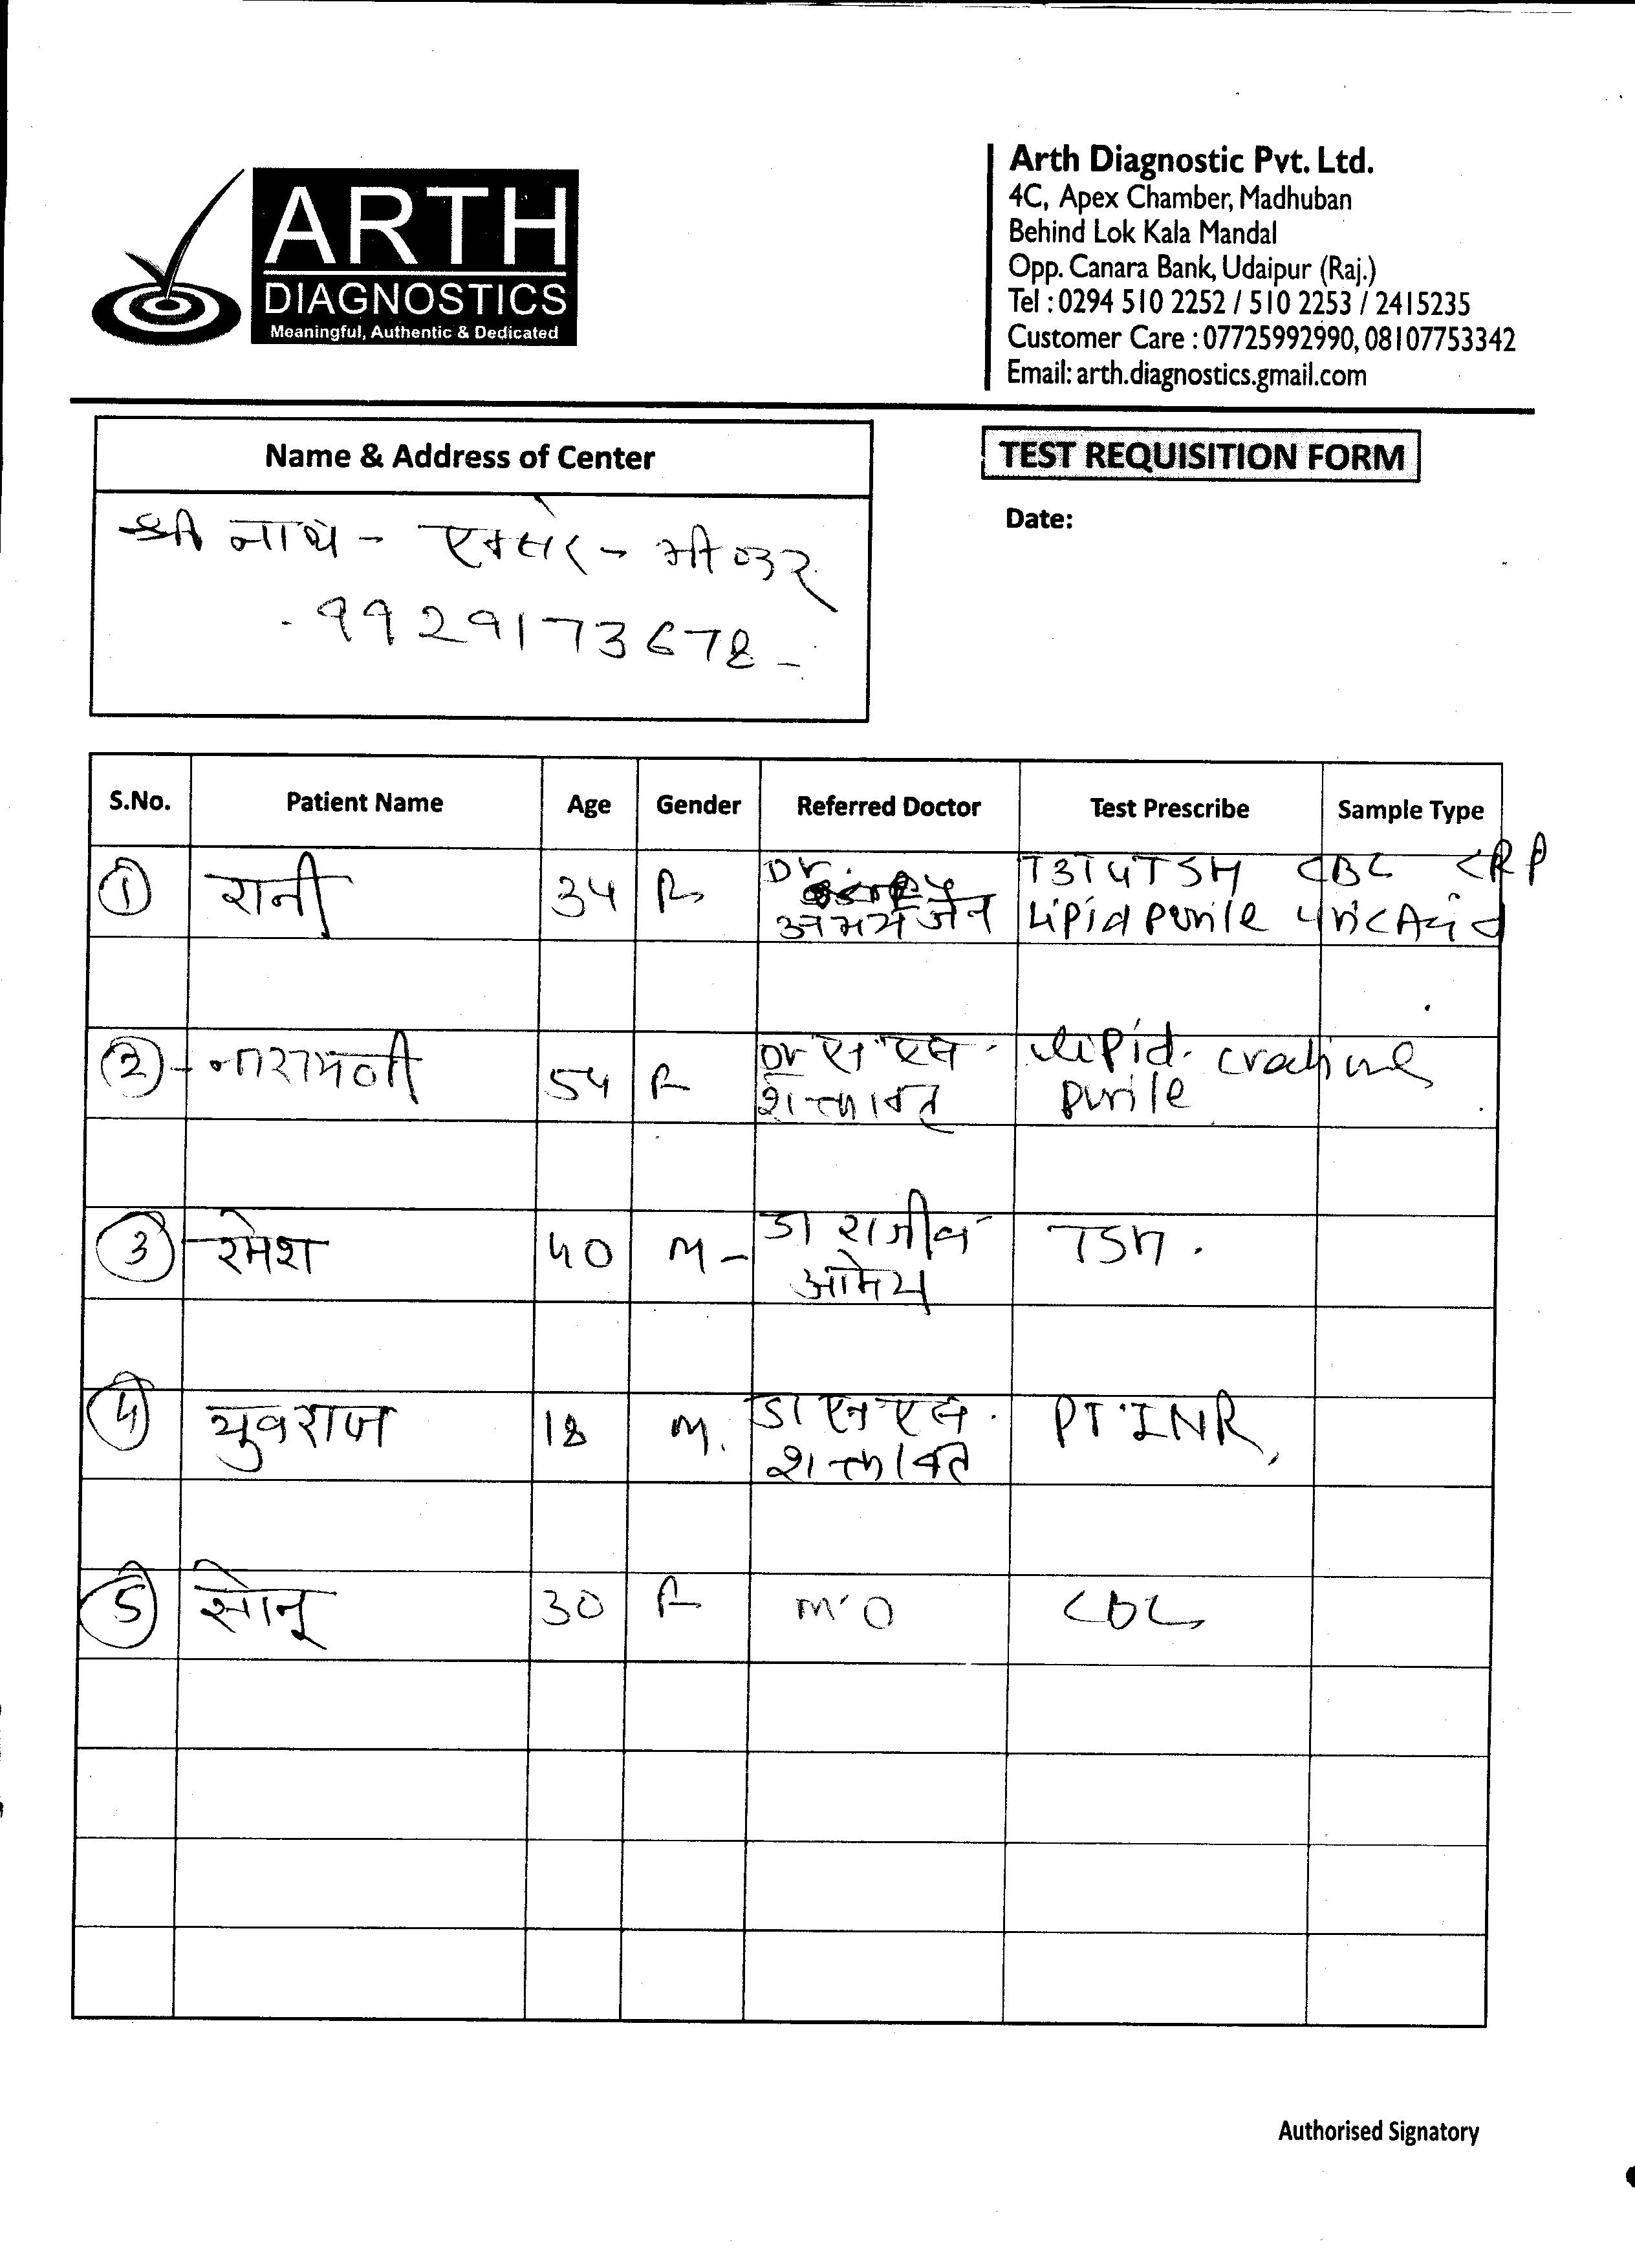 ARTH
DIAGNOSTICS
Meaningful, Authentic & Dedicated
Arth Diagnostic Pvt. Ltd.
4C, Apex Chamber, Madhuban
Behind Lok Kala Mandal
Opp. Canara Bank, Udaipur (Raj.)
Tel : 0294 510 2252 / 510 2253 / 2415235
Customer Care : 07725992990, 08107753342
Email: arth.diagnostics.gmail.com
Name & Address of Center
TEST REQUISITION FORM
Date:
श्री नाथ - एक्सरे - भीण्डर
9929173678 -
S.No. Patient Name Age Gender Referred Doctor Test Prescribe Sample Type
1 रानी 34 F Dr. अभय जैन T3T4TSH CBC CRP
Lipid purile uric Acid
2 - नारायणी 54 F Dr एस एल शक्तावत Lipid. cratine
purile
3 रमेश 40 M - डा राजीव आमेय TSH.
4 युवराज 18 M. डा एन एल शक्तावत PT INR,
5 सोनू 30 F M.O CBC
Authorised Signatory